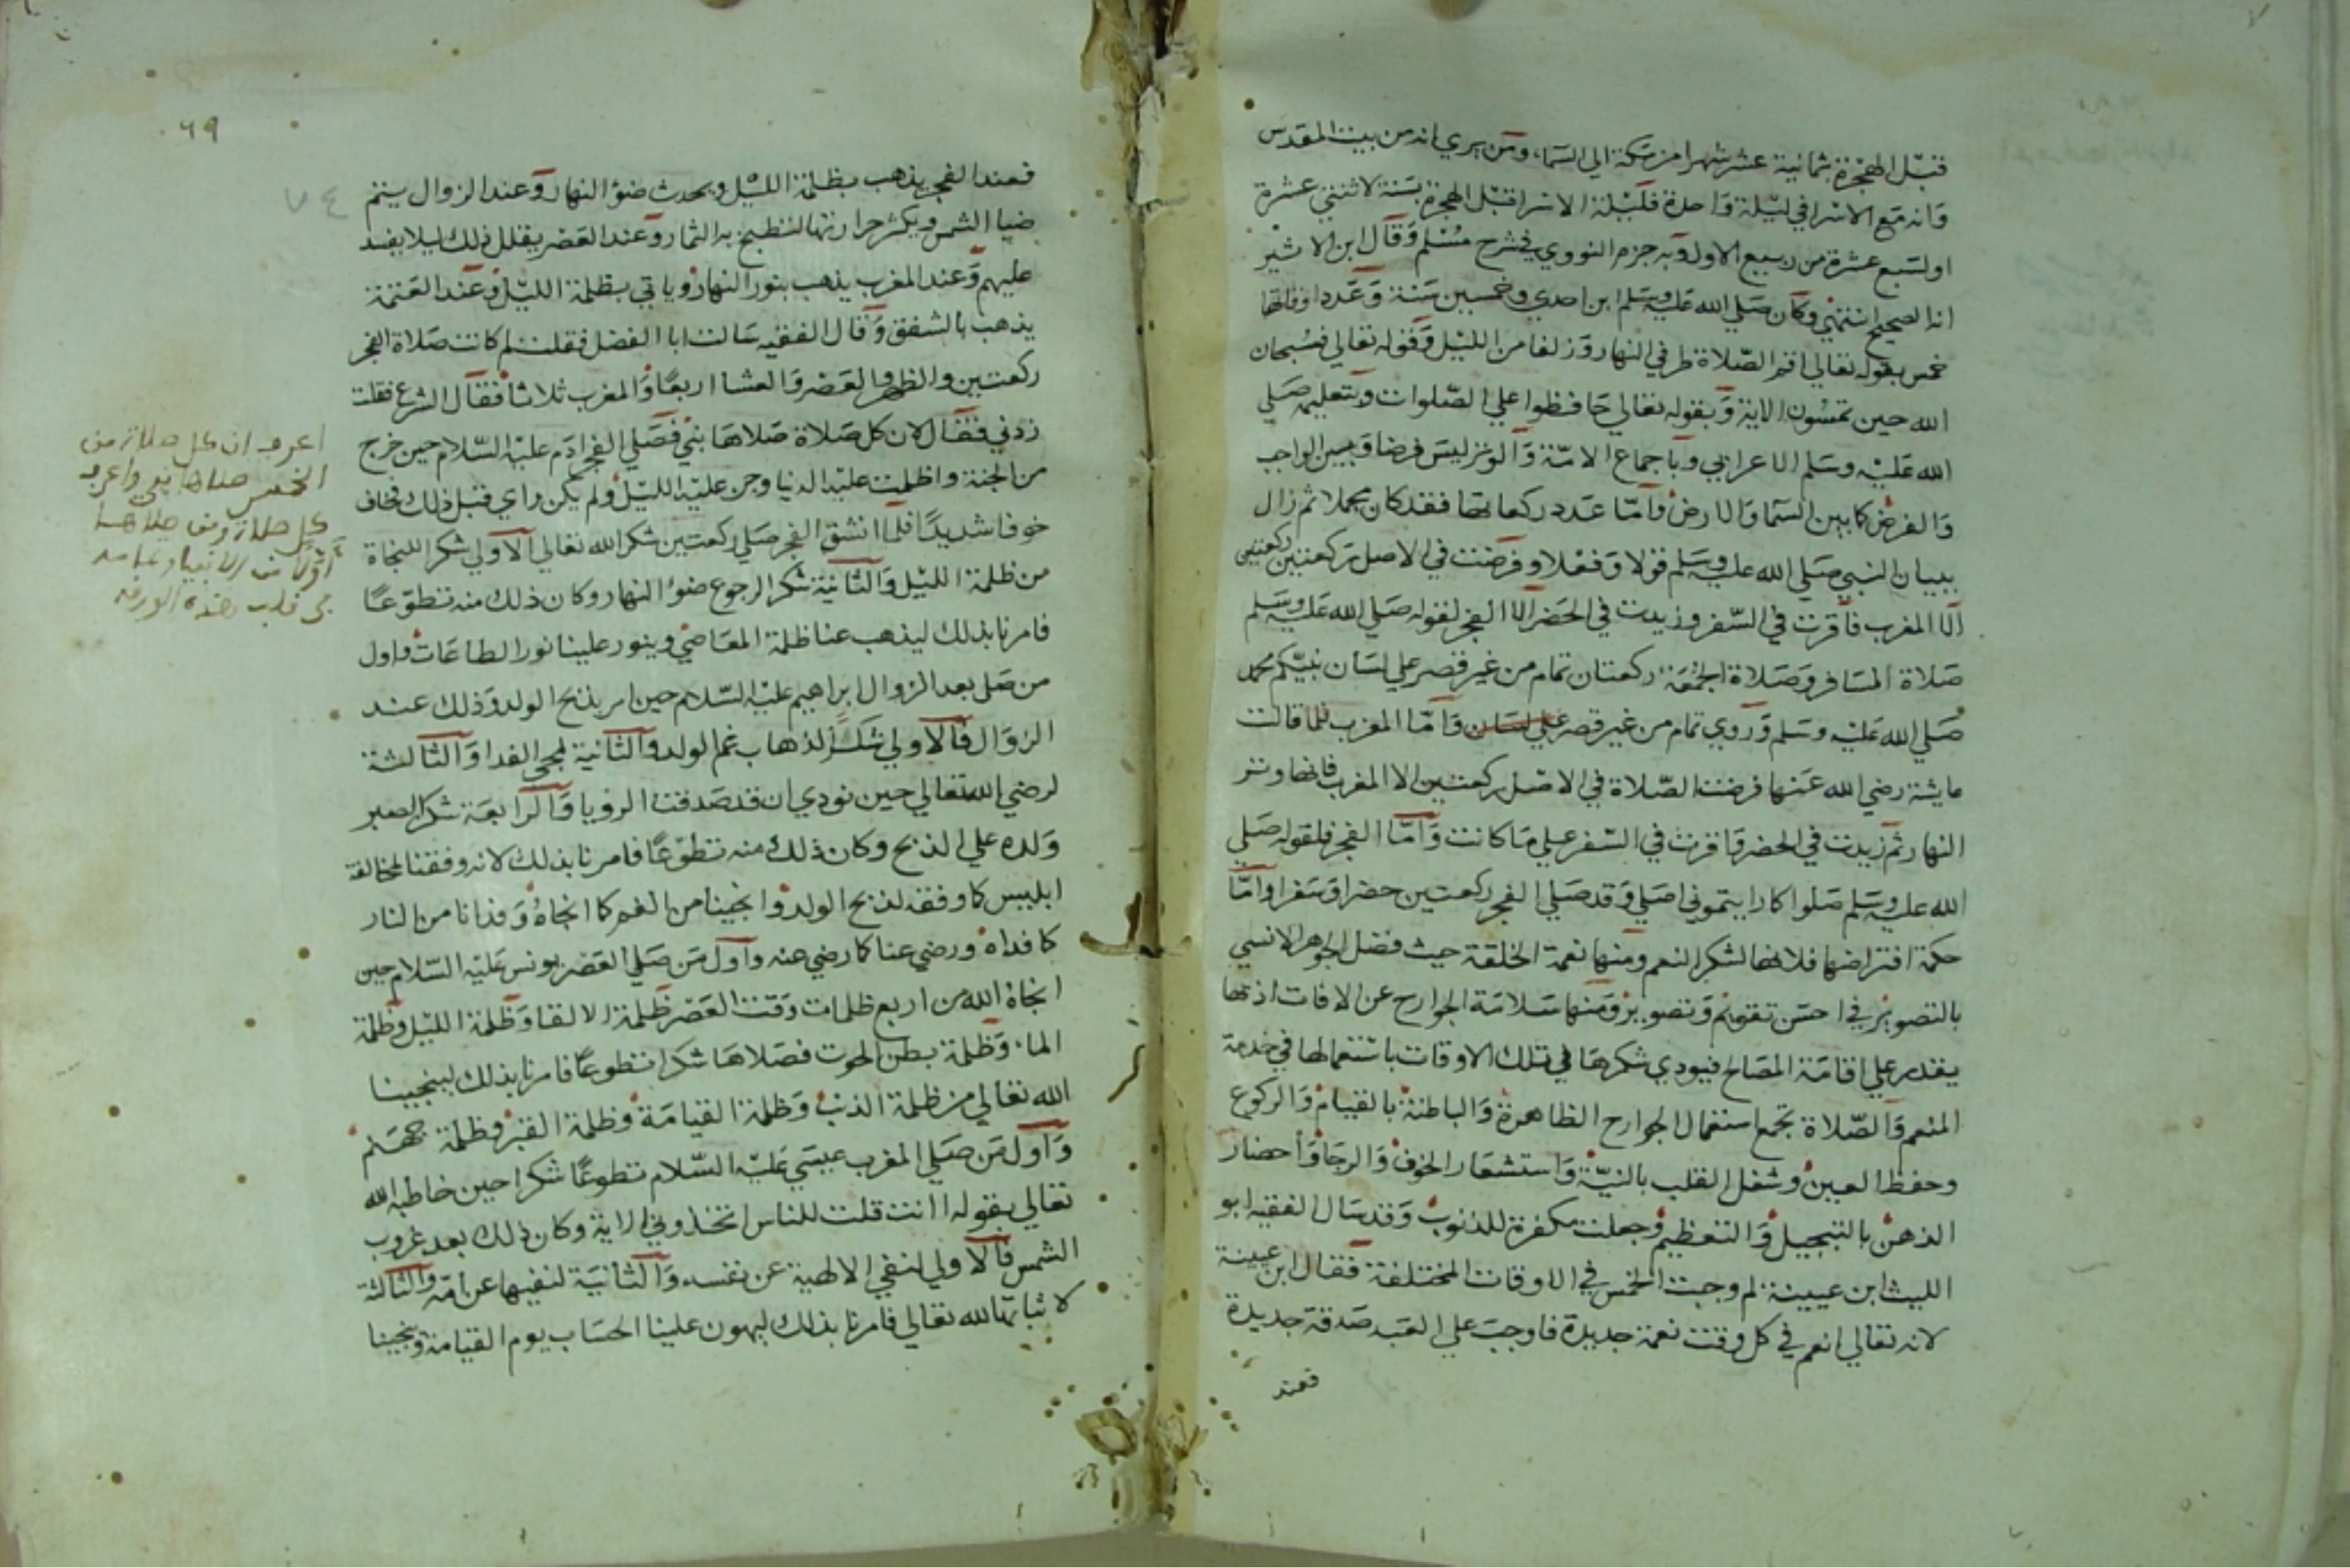 قبل الهجرة بثمانية عشر شهرا من مكة الي السما، ومن يري انه من بيت المقدس
وانه مع الاسرا في ليلة واحدة فليلة الاسرا قبل الهجرة بسنة لاثنتي عشرة
او لسبع عشرة من ربيع الاول وبه جزم النووي في شرح مسلم وقال ابن الاثير
انه الصحيح انتهي وكان صلي الله عليه وسلم ابن احدي وخمسين سنة وعدد اوقاتها
خمس بقوله تعالي اقم الصلاة طرفي النهار وزلفا من الليل وقوله تعالي فسبحان
الله حين تمسون الاية وبقوله تعالي حافظوا علي الصلوات وبتعليمه صلي
الله عليه وسلم الاعرابي وباجماع الامة والوتر ليس فرضا وبين الواجب
والفرض كما بين السما والارض واما عدد ركعاتها فقد كان مجملا ثم زال
ببيان النبي صلي الله عليه وسلم قولا وفعلا وفرضت في الاصل ركعتين ركعتين
الا المغرب فاقرت في السفر وزيدت في الحضر الا الفجر لقوله صلي الله عليه وسلم
صلاة المسافر وصلاة الجمعة ركعتان تمام من غير قصر علي لسان نبيكم محمد
صلي الله عليه وسلم وروي تمام من غير قصر علي لسان واما المغرب فلما قالت
عايشة رضي الله عنها فرضت الصلاة في الاصل ركعتين الا المغرب فانها وتر
النهار ثم زيدت في الحضر واقرت في السفر علي ما كانت واما الفجر فلقوله صلي
الله عليه وسلم صلوا كما رايتموني اصلي وقد صلي الفجر ركعتين حضرا وسفرا واما
حكمة افتراضها فلانها لشكر النعم ومنها نعمة الخلقة حيث فضل الجوهر الانسي
بالتصوير في احسن تقويم وتصوير ومنها سلامة الجوارح عن الافات اذ بها
يقدر علي اقامة المصالح فيودي شكرها في تلك الاوقات باستعمالها في خدمة
المنعم والصلاة تجمع استعمال الجوارح الظاهرة والباطنة بالقيام والركوع
وحفظ العين وشغل القلب بالنية واستشعار الخوف والرجا واحضار
الذهن بالتبجيل والتعظيم وجعلت مكفرة للذنوب وقد سال الفقيه ابو
الليث ابن عيينة لم وجبت الخمس في الاوقات المختلفة فقال ابن عيينة
لانه تعالي انعم في كل وقت نعمة جديدة فاوجب علي العبد صدقة جديدة
فعند
٦٩
٧٤
فعند الفجر يذهب بظلمة الليل ويحدث ضوء النهار وعند الزوال يتم
ضيا الشمس ويكثر حرارتها لتطبخ به الثمار وعند العصر يقلل ذلك ليلا يفسد
عليهم وعند المغرب يذهب بنور النهار وياتي بظلمة الليل وعند العتمة
يذهب بالشفق وقال الفقيه سالت ابا الفضل فقلت لم كانت صلاة الفجر
ركعتين والظهر والعصر والعشا اربعا والمغرب ثلاثا فقال الشرع فقلت
زدني فقال لان كل صلاة صلاها نبي فصلي الفجر ادم عليه السلام حين خرج
من الجنة واظلمت عليه الدنيا وجن عليه الليل ولم يكن راي قبل ذلك فخاف
خوفا شديدا فلما انشق الفجر صلي ركعتين شكرا لله تعالي الاولي شكرا للنجاة
من ظلمة الليل والثانية شكرا لرجوع ضوء النهار وكان ذلك منه تطوعا
فامرنا بذلك ليذهب عنا ظلمة المعاصي وينور علينا نور الطاعات واول
من صلي بعد الزوال ابراهيم عليه السلام حين امر بذبح الولد وذلك عند
الزوال فالاولي شكرا لذهاب غم الولد والثانية لمجي الفدا والثالثة
لرضي الله تعالي حين نودي ان قد صدقت الرويا والرابعة شكرا لصبر
ولده علي الذبح وكان ذلك منه تطوعا فامرنا بذلك لانه وفقنا لمخالفة
ابليس كما وفقه لذبح الولد وانجينا من الغم كما انجاه وفدانا من النار
كما فداه ورضي عنا كما رضي عنه واول من صلي العصر يونس عليه السلام حين
انجاه الله من اربع ظلمات وقت العصر ظلمة الالتقا وظلمة الليل وظلمة
الماء وظلمة بطن الحوت فصلاها شكرا تطوعا فامرنا بذلك لينجينا
الله تعالي من ظلمة الذنب وظلمة القيامة وظلمة القبر وظلمة جهنم
واول من صلي المغرب عيسي عليه السلام تطوعا شكرا حين خاطبه الله
تعالي بقوله اانت قلت للناس اتخذوني الاية وكان ذلك بعد غروب
الشمس فالاولي لنفي الالهية عن نفسه والثانية لنفيها عن امه والثالثة
لاثباتها لله تعالي فامرنا بذلك ليهون علينا الحساب يوم القيامة وينجينا
اعرف ان كل صلاة من
الخمس صلاها نبي واعرف
كل صلاة ومن صلاها
اولا من الانبيا
في قلب هذه الورقة